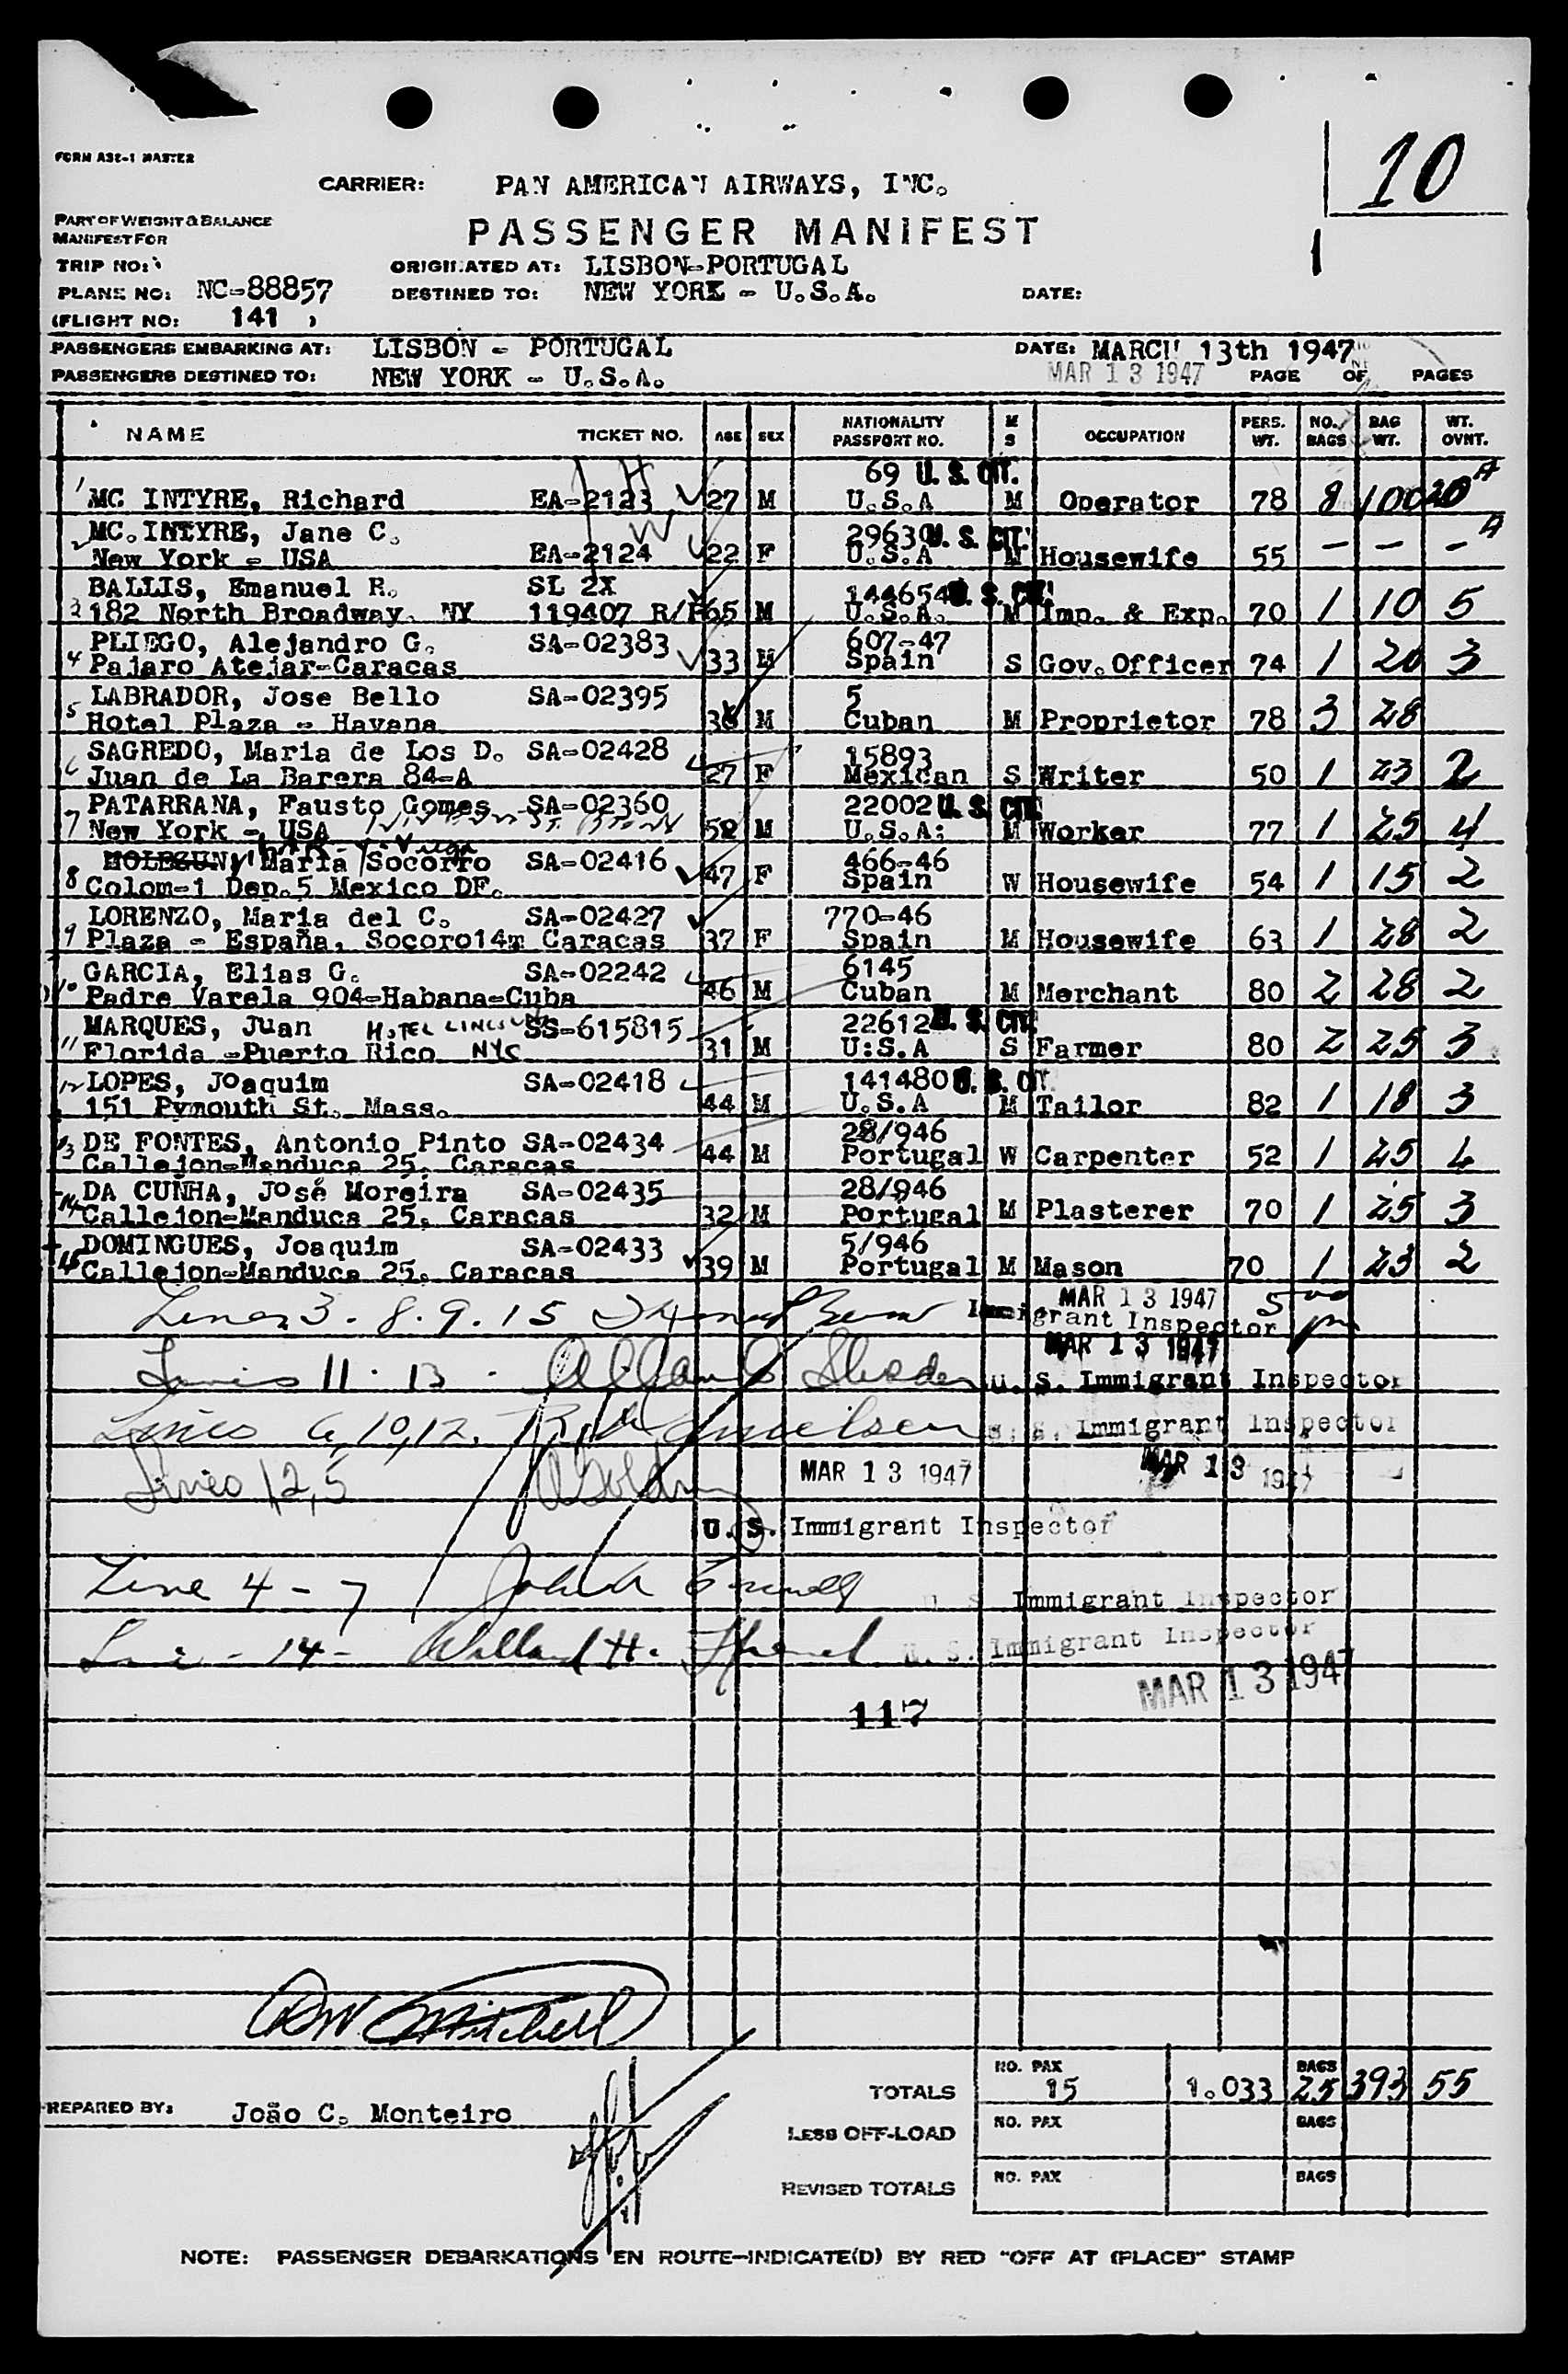 10
FORM A32-1 MASTER
CARRIER: PAN AMERICAN AIRWAYS, INC.
PART OF WEIGHT & BALANCE
MANIFEST FOR
PASSENGER MANIFEST
1
TRIP NO: ORIGINATED AT: LISBON-PORTUGAL
PLANE NO: NC-88857 DESTINED TO: NEW YORK - U.S.A. DATE:
(FLIGHT NO: 141 )
PASSENGERS EMBARKING AT: LISBON - PORTUGAL DATE: MARCH 13th 1947
PASSENGERS DESTINED TO: NEW YORK - U.S.A. MAR 13 1947 PAGE OF PAGES
NAME TICKET NO. AGE SEX NATIONALITY PASSPORT NO. M S OCCUPATION PERS. WT. NO. BAGS BAG WT. WT. OVNT.
69 U. S. CIT.
1 MC INTYRE, Richard EA-2123 27 M U.S.A M Operator 78 8 100 20 A
MC.INTYRE, Jane C. 29630 U. S. CIT. A
2 New York - USA EA-2124 22 F U.S.A M Housewife 55 - - -
BALLIS, Emanuel R. SL 2X 144654 U. S. CIT.
3 182 North Broadway. NY 119407 R/P 65 M U.S.A. M Imp. & Exp. 70 1 10 5
PLIEGO, Alejandro G. SA-02383 607-47
4 Pajaro Atejar-Caracas 33 M Spain S Gov.Officer 74 1 20 3
LABRADOR, Jose Bello SA-02395 5
5 Hotel Plaza - Havana 36 M Cuban M Proprietor 78 3 28
SAGREDO, Maria de Los D. SA-02428 15893
6 Juan de La Barera 84-A 27 F Mexican S Writer 50 1 23 2
PATARRANA, Fausto Gomes SA-02360 22002 U. S. CIT.
7 New York - USA 52 M U.S.A: M Worker 77 1 25 4
Maria Socorro SA-02416 466-46
8 Colom-1 Dep.5 Mexico DF. 47 F Spain W Housewife 54 1 15 2
LORENZO, Maria del C. SA-02427 770-46
9 Plaza - España, Socoro14m Caracas 37 F Spain M Housewife 63 1 28 2
GARCIA, Elias G. SA-02242 6145
10 Padre Varela 904-Habana-Cuba 46 M Cuban M Merchant 80 2 28 2
MARQUES, Juan HOTEL LINCOLN SS-615815 22612 U. S. CIT.
11 Florida -Puerto Rico NYC 31 M U:S.A S Farmer 80 2 25 3
12 LOPES, Joaquim SA-02418 141480 U. S. CIT.
151 Pymouth St. Mass. 44 M U.S.A M Tailor 82 1 18 3
13 DE FONTES, Antonio Pinto SA-02434 28/946
Callejon-Manduca 25, Caracas 44 M Portugal W Carpenter 52 1 25 4
DA CUNHA, José Moreira SA-02435 28/946
14 Callejon-Manduca 25, Caracas 32 M Portugal M Plasterer 70 1 25 3
DOMINGUES, Joaquim SA-02433 5/946
15 Callejon-Manduca 25, Caracas 39 M Portugal M Mason 70 1 23 2
Lines 3. 8. 9. 15 MAR 13 1947 500 pm
Immigrant Inspector
MAR 13 1947
Lines 11. 13. U. S. Immigrant Inspector
Lines 6, 10, 12. U. S. Immigrant Inspector
Lines 1, 2, 5 MAR 13 1947 MAR 13 1947
U. S. Immigrant Inspector
Line 4 - 7 U. S. Immigrant Inspector
Line - 14 - Willard H. U. S. Immigrant Inspector
MAR 13 1947
117
Mitchell
TOTALS NO. PAX 15 1.033 BAGS 25 393 55
PREPARED BY: João C. Monteiro
LESS OFF-LOAD NO. PAX BAGS
REVISED TOTALS NO. PAX BAGS
NOTE: PASSENGER DEBARKATIONS EN ROUTE—INDICATE(D) BY RED "OFF AT (PLACE)" STAMP